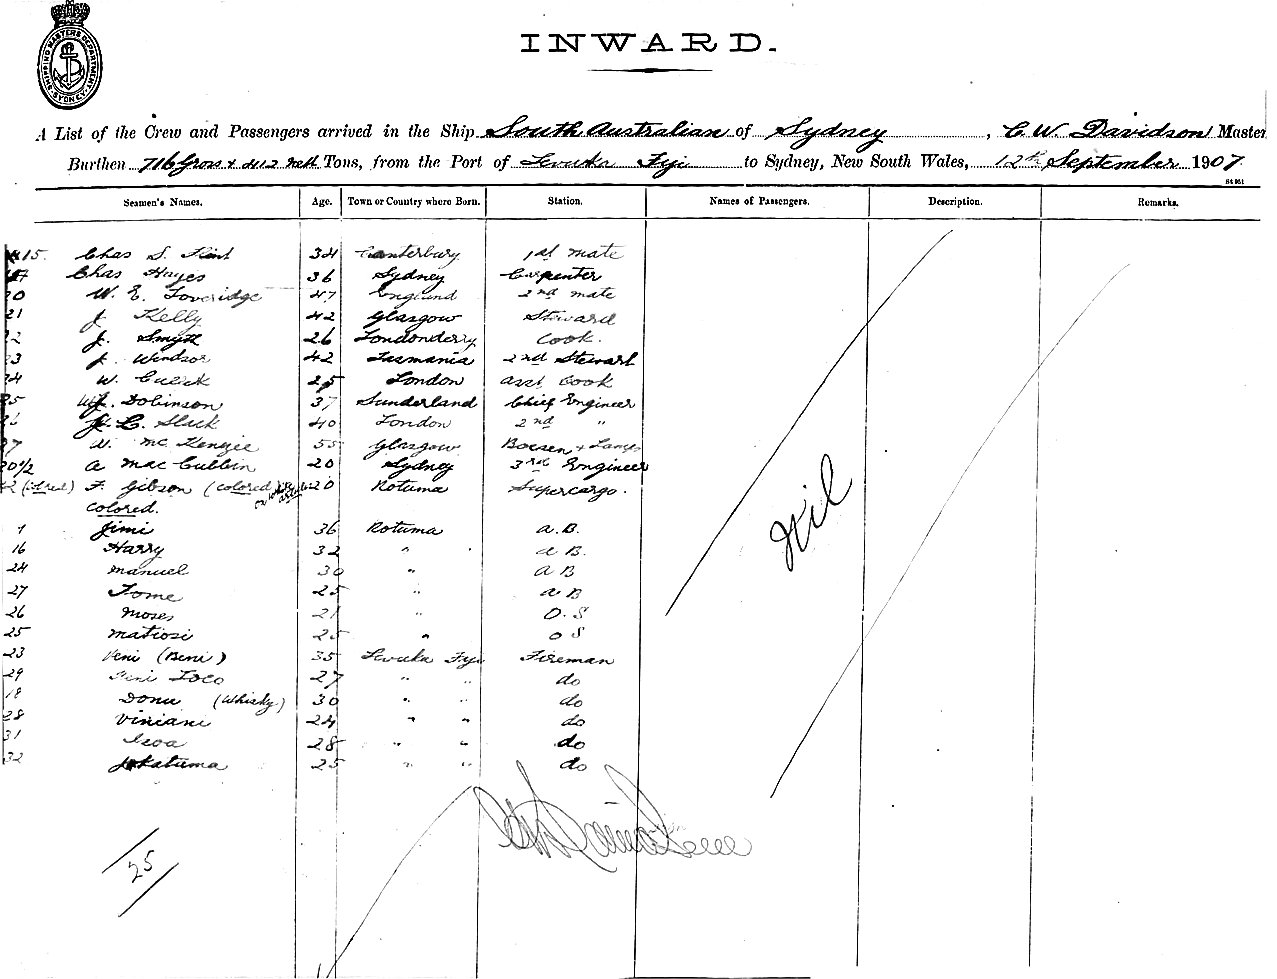 SHIPPING MASTERS DEPARTMENT SYDNEY
INWARD.
A List of the Crew and Passengers arrived in the Ship South Australian of Sydney, C. W. Davidson Master
Burthen 716 Gross + 412 nett Tons, from the Port of Levuka Fiji to Sydney, New South Wales, 12th September 1907
Seamen's Names. Age. Town or Country where Born. Station. Names of Passengers. Description. Remarks.
15. Chas S. Flint 34 Canterbury 1st mate
Chas Hayes 36 Sydney Carpenter
20 W. E. Loveridge 47 England 2nd mate
21 J. Kelly 42 Glasgow Steward
22 J. Smyth 26 Londonderry Cook.
23 J. Windsor 42 Tasmania 2nd Steward
24 W. 25 London asst Cook
25 Dobinson 37 Sunderland Chief Engineer
26 Slack 40 London 2nd "
27 W. Mc Kenzie 55 Glasgow Bosun + Lamps
A MacCubbin 20 Sydney 3rd Engineer
F. Gibson (colored) 20 Rotuma Supercargo.
colored.
Jimi 36 Rotuma A. B.
16 Harry 32 " A B.
24 Manuel 30 " A B
27 Tome 25 " A B
26 Moses 21 " O. S
25 Matiosi 25 " O S
23 Veni (Beni) 35 Levuka Fiji Fireman
29 Loco 27 " " do
18 Donu (Whisky) 30 " " do
28 Viniani 24 " " do
31 Isoa 28 " " do
32 Jokatama 25 " " do
Nil
25